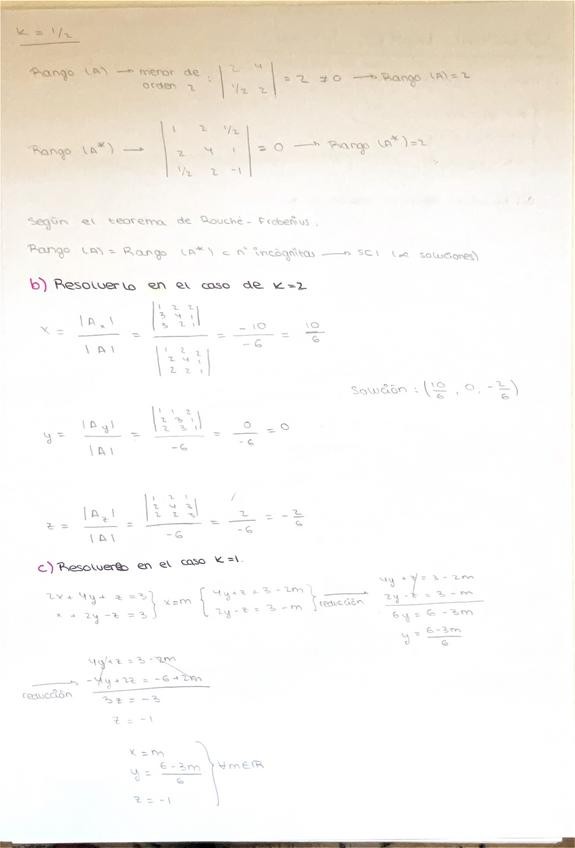 K = 1/2
Rango (A) → menor de orden 2 : | 2 4 ; 1/2 2 | = 2 ≠ 0 → Rango (A) = 2
Rango (A*) → | 1 2 1/2 ; 2 4 1 ; 1/2 2 -1 | = 0 → Rango (A*) = 2
Según el teorema de Rouché-Frobenius.
Rango (A) = Rango (A*) < nº incógnitas → SCI (∞ soluciones)
b) Resolverlo en el caso de K=2
x = |Ax| / |A| = | 1 2 2 ; 3 4 1 ; 3 2 1 | / | 1 2 2 ; 2 4 1 ; 2 2 1 | = -10 / -6 = 10/6
Solución : (10/6 , 0, -2/6)
y = |Ay| / |A| = | 1 1 2 ; 2 3 1 ; 2 3 1 | / -6 = 0 / -6 = 0
z = |Az| / |A| = | 1 2 1 ; 2 4 3 ; 2 2 3 | / -6 = 2 / -6 = -2/6
c) Resolverlo en el caso K=1.
2x + 4y + z = 3
x + 2y - z = 3 } x=m { 4y+z = 3 - 2m
2y - z = 3 - m } reducción →
4y + z = 3 - 2m
2y - z = 3 - m
6y = 6 - 3m
y = 6-3m / 6
reducción →
4y+z = 3 - 2m
-4y+2z = -6+2m
3z = -3
z = -1
x = m
y = 6-3m / 6 } ∀m∈ℝ
z = -1